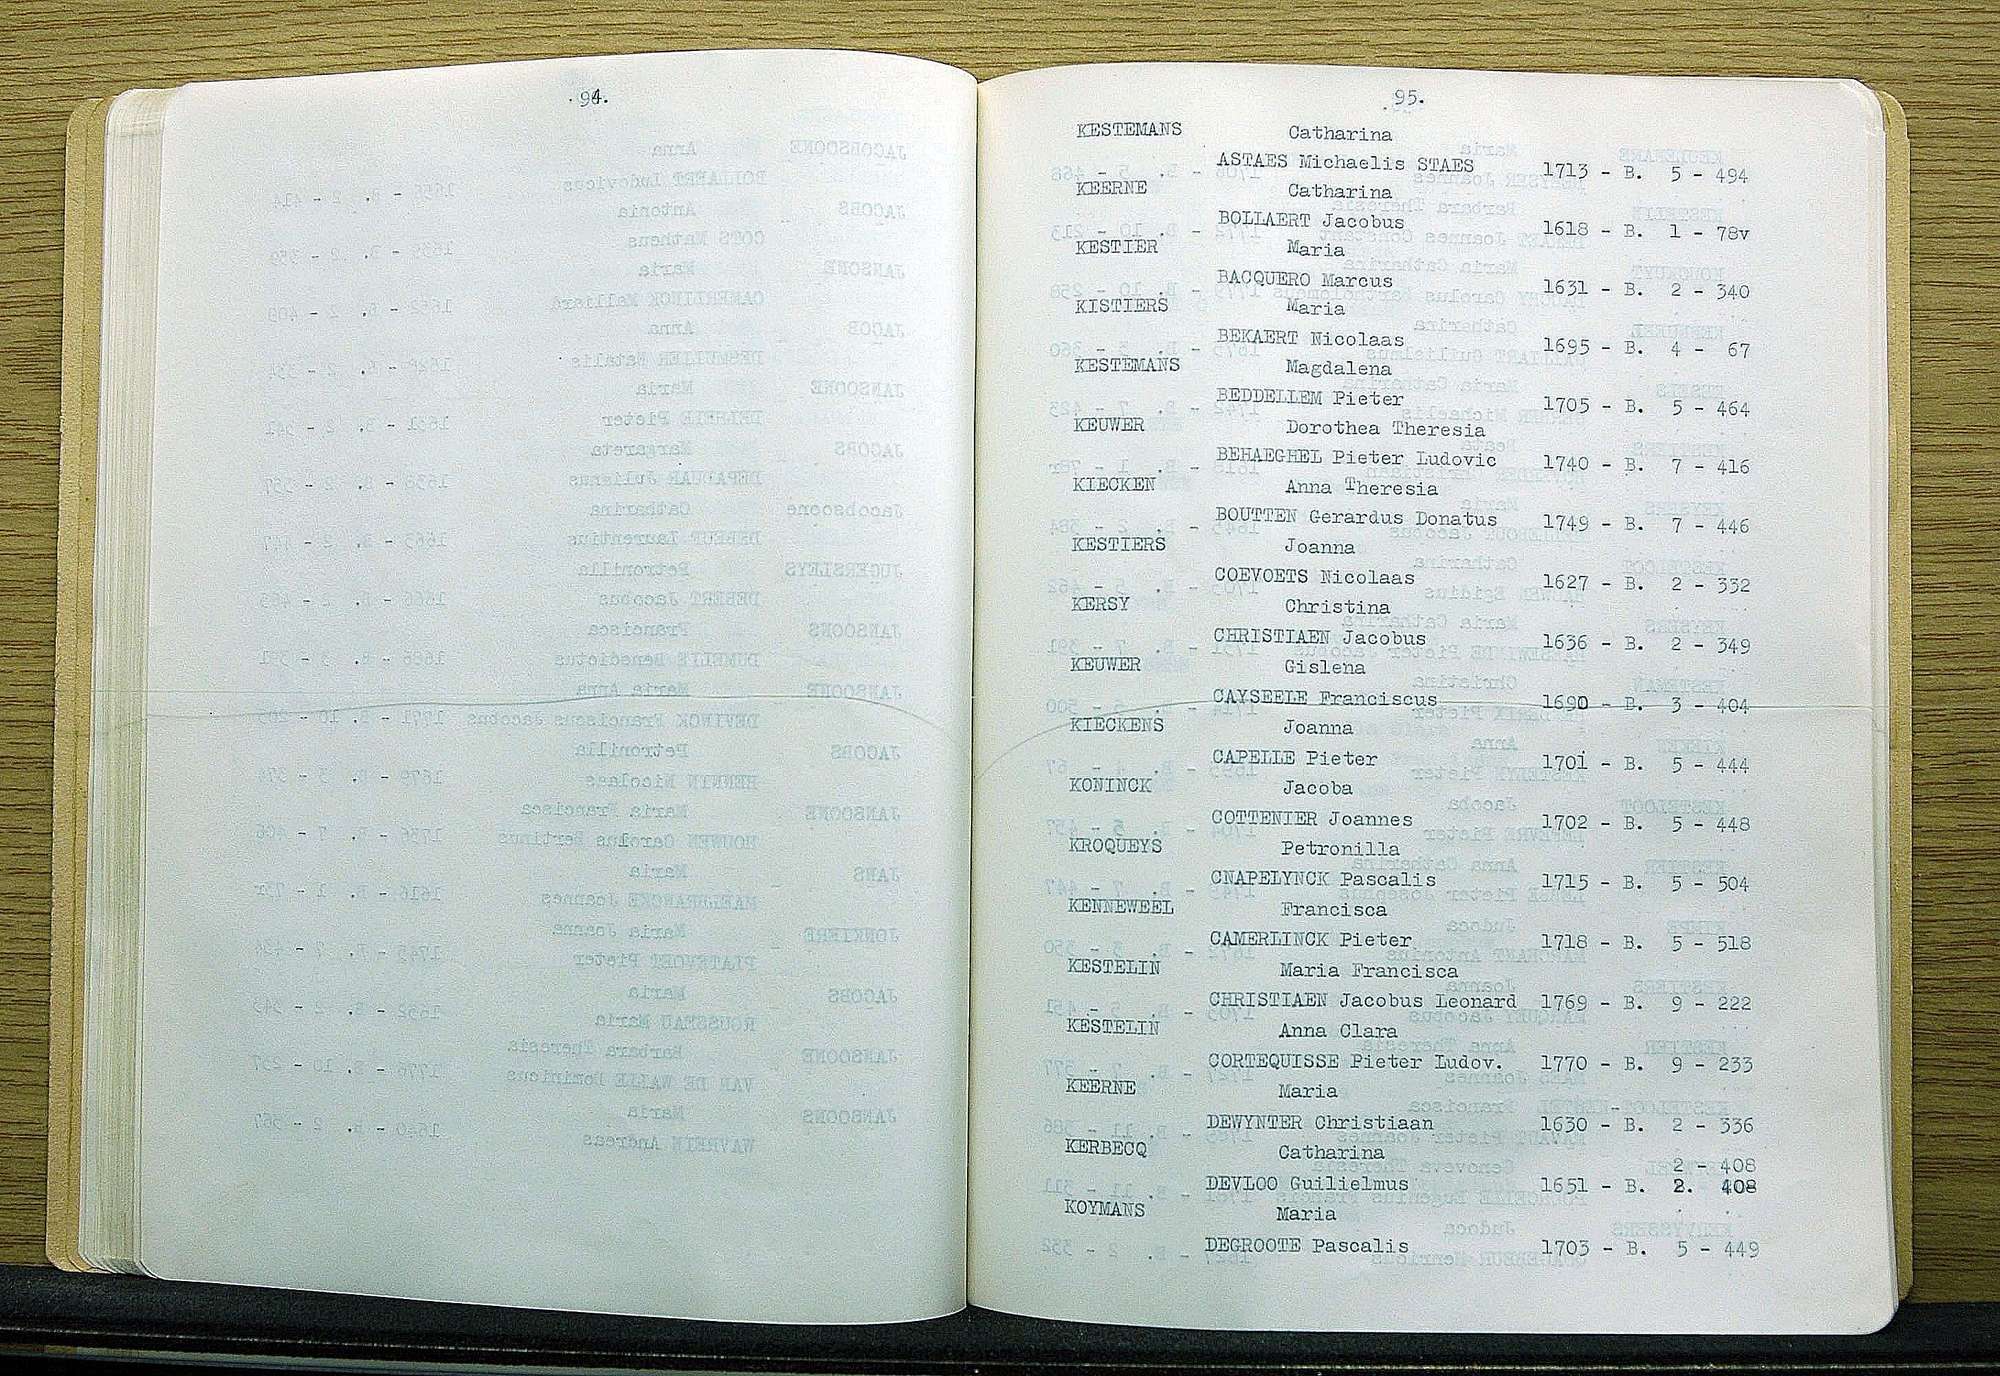 94.
95.
KESTEMANS Catharina
ASTAES Michaelis STAES 1713 - B. 5 - 494
KEERNE Catharina
BOLLAERT Jacobus 1618 - B. 1 - 78v
KESTIER Maria
BACQUERO Marcus 1631 - B. 2 - 340
KISTIERS Maria
BEKAERT Nicolaas 1695 - B. 4 - 67
KESTEMANS Magdalena
BEDDELLEM Pieter 1705 - B. 5 - 464
KEUWER Dorothea Theresia
BEHAEGHEL Pieter Ludovic 1740 - B. 7 - 416
KIECKEN Anna Theresia
BOUTTEN Gerardus Donatus 1749 - B. 7 - 446
KESTIERS Joanna
COEVOETS Nicolaas 1627 - B. 2 - 332
KERSY Christina
CHRISTIAEN Jacobus 1636 - B. 2 - 349
KEUWER Gislena
CAYSEELE Franciscus 1690 - B. 3 - 404
KIECKENS Joanna
CAPELLE Pieter 1701 - B. 5 - 444
KONINCK Jacoba
COTTENIER Joannes 1702 - B. 5 - 448
KROQUEYS Petronilla
CNAPELYNCK Pascalis 1715 - B. 5 - 504
KENNEWEEL Francisca
CAMERLINCK Pieter 1718 - B. 5 - 518
KESTELIN Maria Francisca
CHRISTIAEN Jacobus Leonard 1769 - B. 9 - 222
KESTELIN Anna Clara
CORTEQUISSE Pieter Ludov. 1770 - B. 9 - 233
KEERNE Maria
DEWYNTER Christiaan 1630 - B. 2 - 336
KERBECQ Catharina 2 - 408
DEVLOO Guilielmus 1651 - B. 2. 408
KOYMANS Maria
DEGROOTE Pascalis 1703 - B. 5 - 449